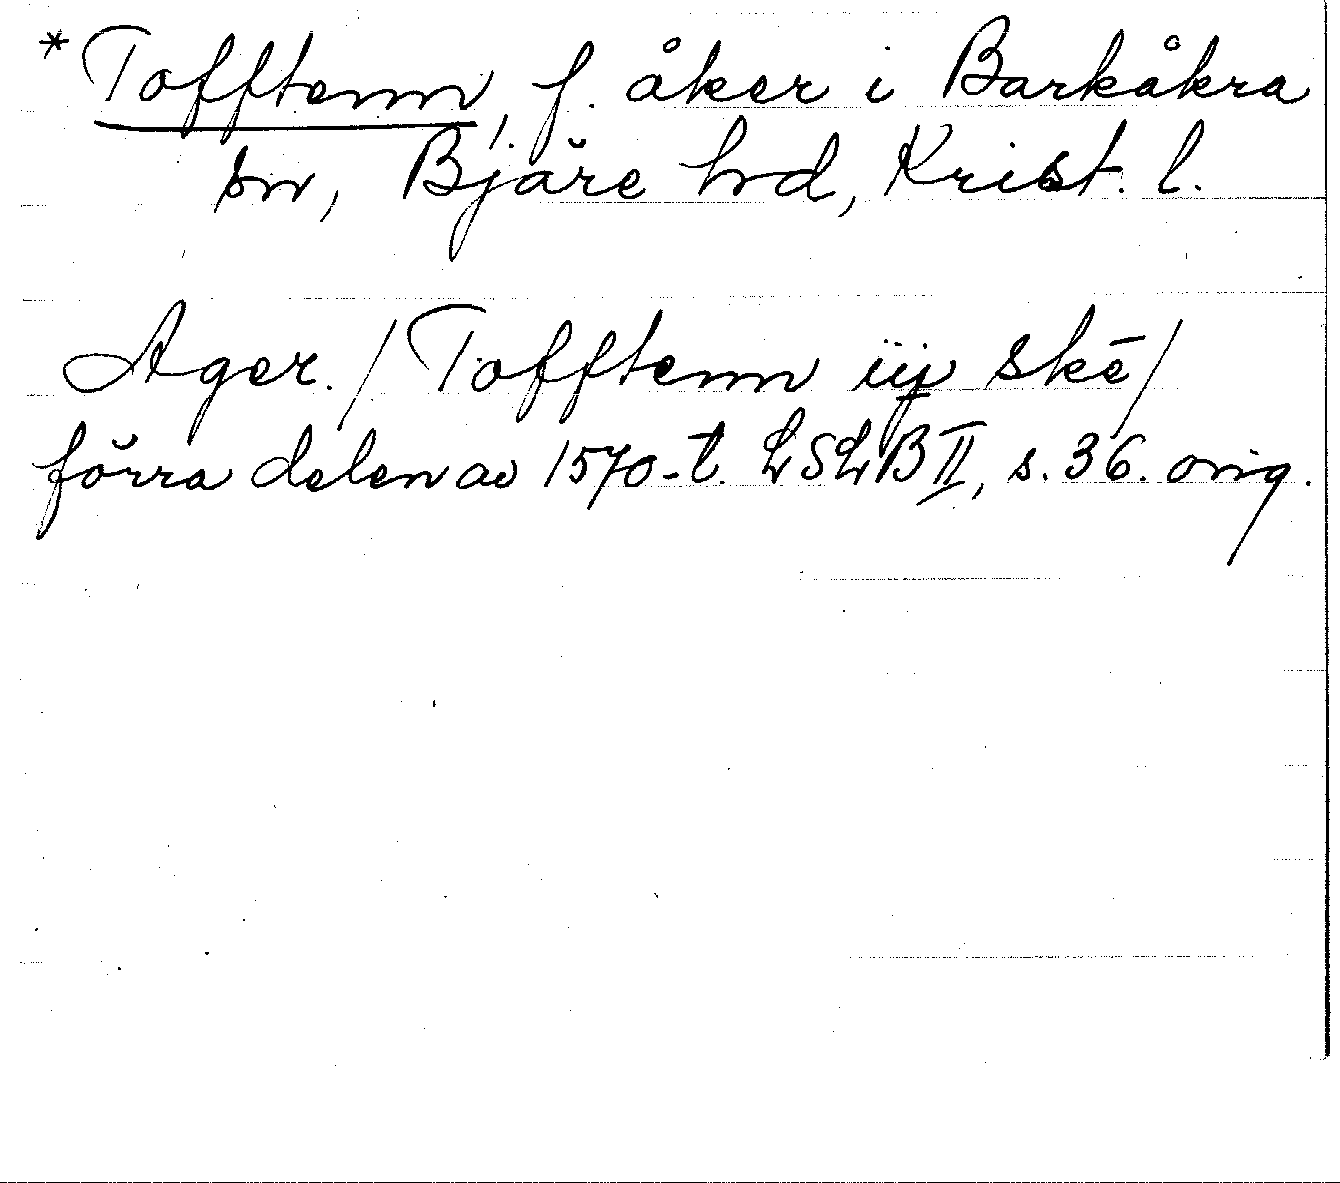 *Tofftenn, f. åker i Barkåkra
sn, Bjäre hrd, Krist. l.
Ager. / Tofftenn iij skē /
förra delen av 1570-t. LSLB II, s. 36. orig.